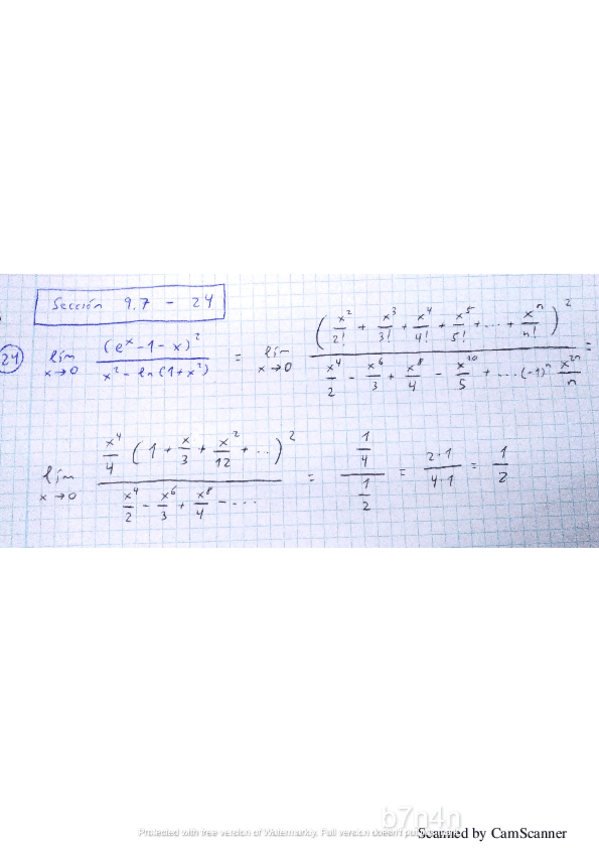 Sección 9.7 - 24
24 lím x→0 (e^x - 1 - x)^2 / (x^2 - ln(1 + x^2)) = lím x→0 (x^2/2! + x^3/3! + x^4/4! + x^5/5! + ... + x^n/n!)^2 / (x^4/2 - x^6/3 + x^8/4 - x^10/5 + ... (-1)^n x^2n/n) =
lím x→0 x^4/4 (1 + x/3 + x^2/12 + ...)^2 / (x^4/2 - x^6/3 + x^8/4 - ...) = (1/4) / (1/2) = 2·1 / 4·1 = 1/2
b7n4n
Protected with free version of Watermarkly. Full version doesn't put
Scanned by CamScanner